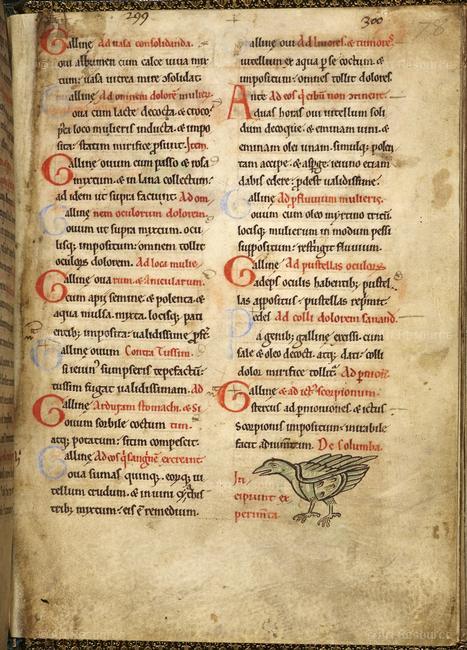 299
300
78
Galline Ad uasa consolidanda.
oui albumen cum calce uiua mix
tum: uasa uitrea mire ɔsolidat.
Galline Ad omnem dolorē mulieɤ.
oua cum lacte decocta. & croco.
loco mulieris inducta. & impo
sita: statim mirifice Item.
Galline ouum cum passo & rosa
mixtum. & in lana collectum.
ad idem ut supra faciunt. Ad om
Galline nem oculorum dolorem.
ouum ut supra mixtum. ocu
lisq; impositum: omnem tollit
oculoɤ dolorem. Ad loca mulie
Galline oua rum. & auricularum.
cum apii semine. & polenta. &
aqua mulsa. mixta. locisq; pati
entib; imposita: ualidissime
Galline ouum Contra Tussim.
si ieiun' sumpseris tepefactū:
tussim fugat ualidissimam. Ad
Galline Ardorem stomachi. & Si
ouum sorbile coctum tim.
atq; potatum: sitim compescit.
Galline Ad eos q̇ sanguinē excreant.
oua sumas quinq; eorūq; ui
tellum crudum. & in uini
trib; mixtum: eis ē remedium.
Galline oui Ad liuores. & tumores.
uitellum ex aqua pse coctum. &
impositum: omnes tollit dolores.
Ante Ad eos q̇ cibū non ɔtinent.
duas horas oui uitellum soli
dum decoque. & eminam uini. &
eminam olei unam. simulq; polen
tam accipe. & asꝑge. ieiuno etiam
dabis edere: ꝓdest ualidissime.
Galline Ad ꝓfluuium mulieris.
ouum cum oleo mixtum
locisq; mulierum in modum pessi
suppositum: restrigit fluuium.
Galline Ad pustellas oculoɤ.
adeps oculis habentib; pustel
las appositus: pustellas reprimit.
Pedes Ad colli dolorem sanand.
galline excissi. cum
sale & oleo decocti. atq; dati: colli
dolor mirifice tollit. Ad
Galline & ad ict' scorpionum.
stercus ad & ictus
Scorpionis impositum: mirabile
facit adiutum. De Columba.
In
cipiunt ex
perimta